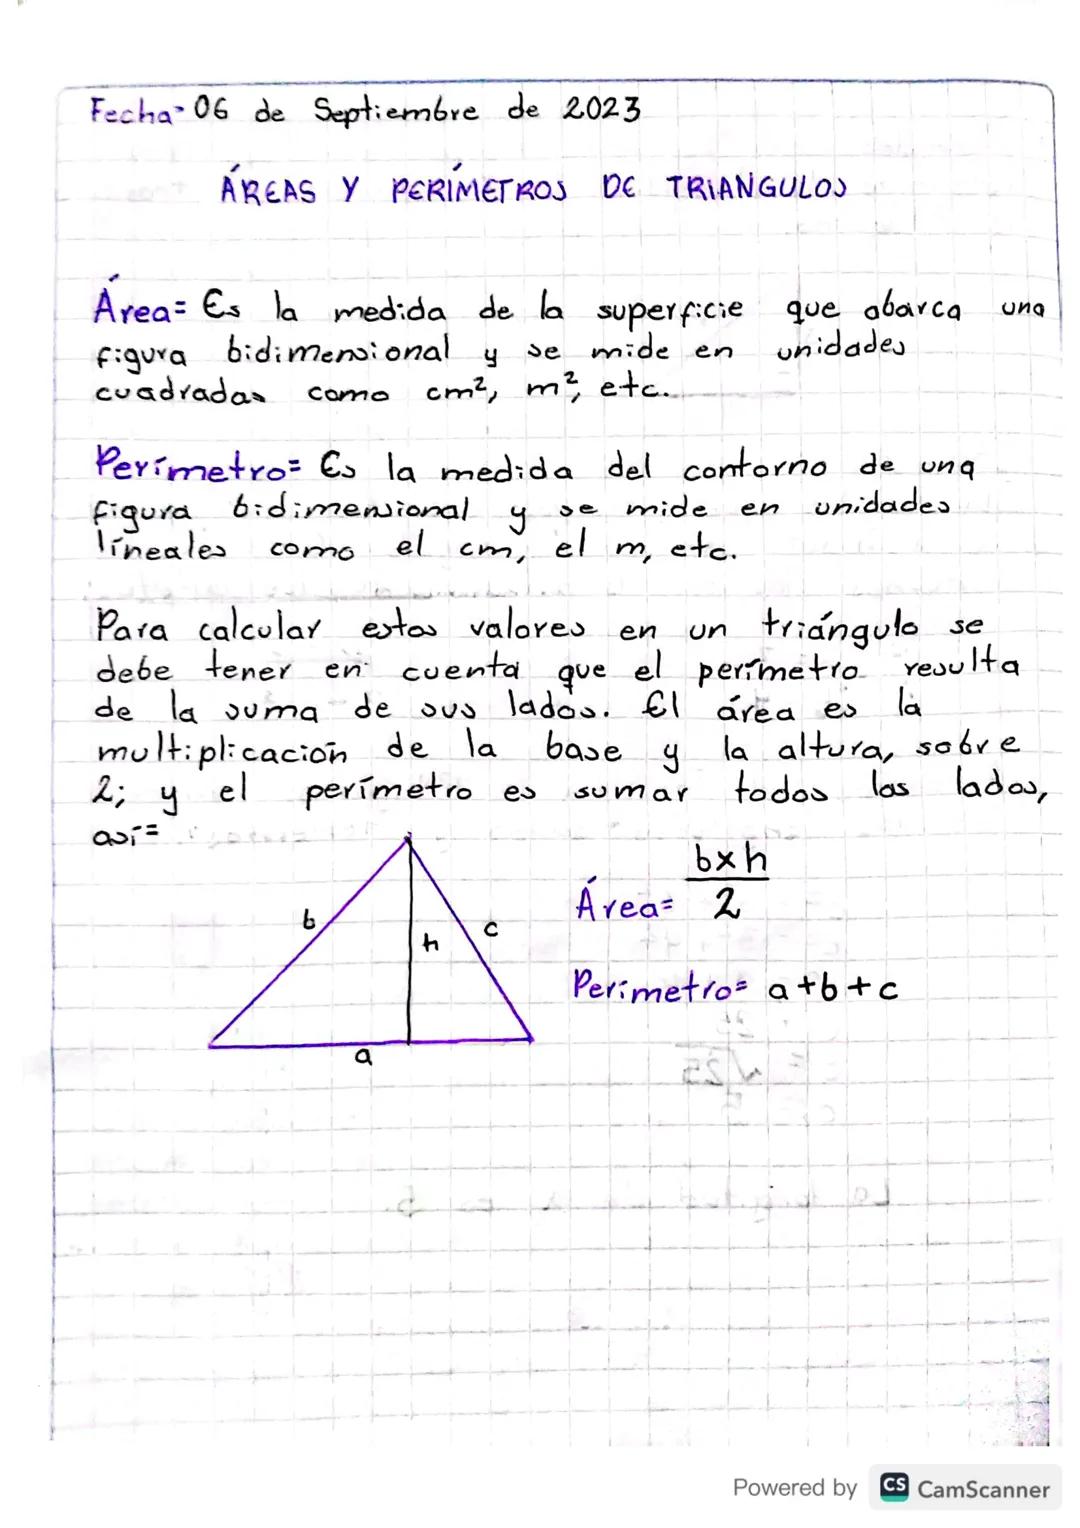 Fecha= 06 de Septiembre de 2023
ÁREAS Y PERÍMETROS DE TRIANGULOS
Área= Es la medida de la superficie que abarca una
figura bidimensional y se mide en unidades
cuadradas como cm², m², etc.
Perímetro= Es la medida del contorno de una
figura bidimensional y se mide en unidades
líneales como el cm, el m, etc.
Para calcular estos valores en un triángulo se
debe tener en cuenta que el perímetro resulta
de la suma de sus lados. El área es la
multiplicación de la base y la altura, sobre
2; y el perímetro es sumar todos los lados,
así=
b
h
c
a
Área= b×h
2
Perimetro= a+b+c
Powered by CS CamScanner